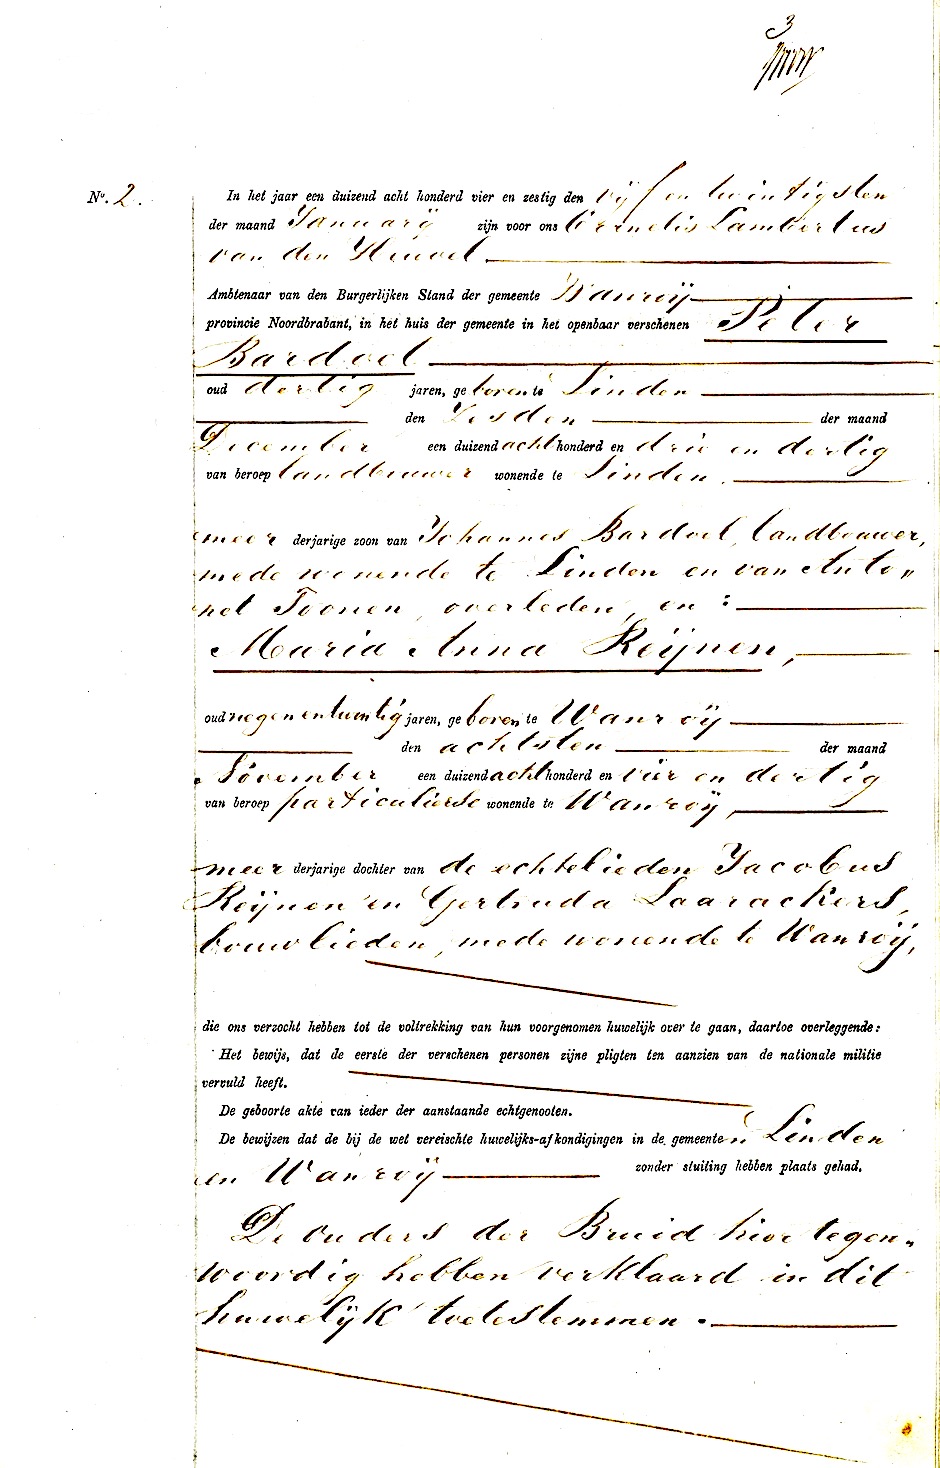 3
No. 2.
In het jaar een duizend acht honderd vier en zestig den vijf en twintigsten
der maand Januarij zijn voor ons Cornelis Lambertus
van den Heuvel
Ambtenaar van den Burgerlijken Stand der gemeente Wanroij
provincie Noordbrabant, in het huis der gemeente in het openbaar verschenen Peter
Bardoel
oud dertig jaren, geboren te Linden
den Zesden der maand
December een duizend acht honderd en drie en dertig
van beroep landbouwer wonende te Linden.
meerderjarige zoon van Johannes Bardoel, landbouwer,
mede wonende te Linden en van Anto„
net Toonen, overleden, en:
Maria Anna Reijnen,
oud negenentwintig jaren, geboren te Wanroij
den achtsten der maand
November een duizend acht honderd en vier en dertig
van beroep particuliere wonende te Wanroij,
meerderjarige dochter van de echtelieden Jacobus
Reijnen en Gertruda Laarackers,
bouwlieden, mede wonende te Wanroij,
die ons verzocht hebben tot de voltrekking van hun voorgenomen huwelijk over te gaan, daartoe overleggende:
Het bewijs, dat de eerste der verschenen personen zijne pligten ten aanzien van de nationale militie
vervuld heeft.
De geboorte akte van ieder der aanstaande echtgenooten.
De bewijzen dat de bij de wet vereischte huwelijks-afkondigingen in de gemeenten Linden
en Wanroij zonder stuiting hebben plaats gehad.
De ouders der Bruid hier tegen„
woordig hebben verklaard in dit
huwelijk toetestemmen.